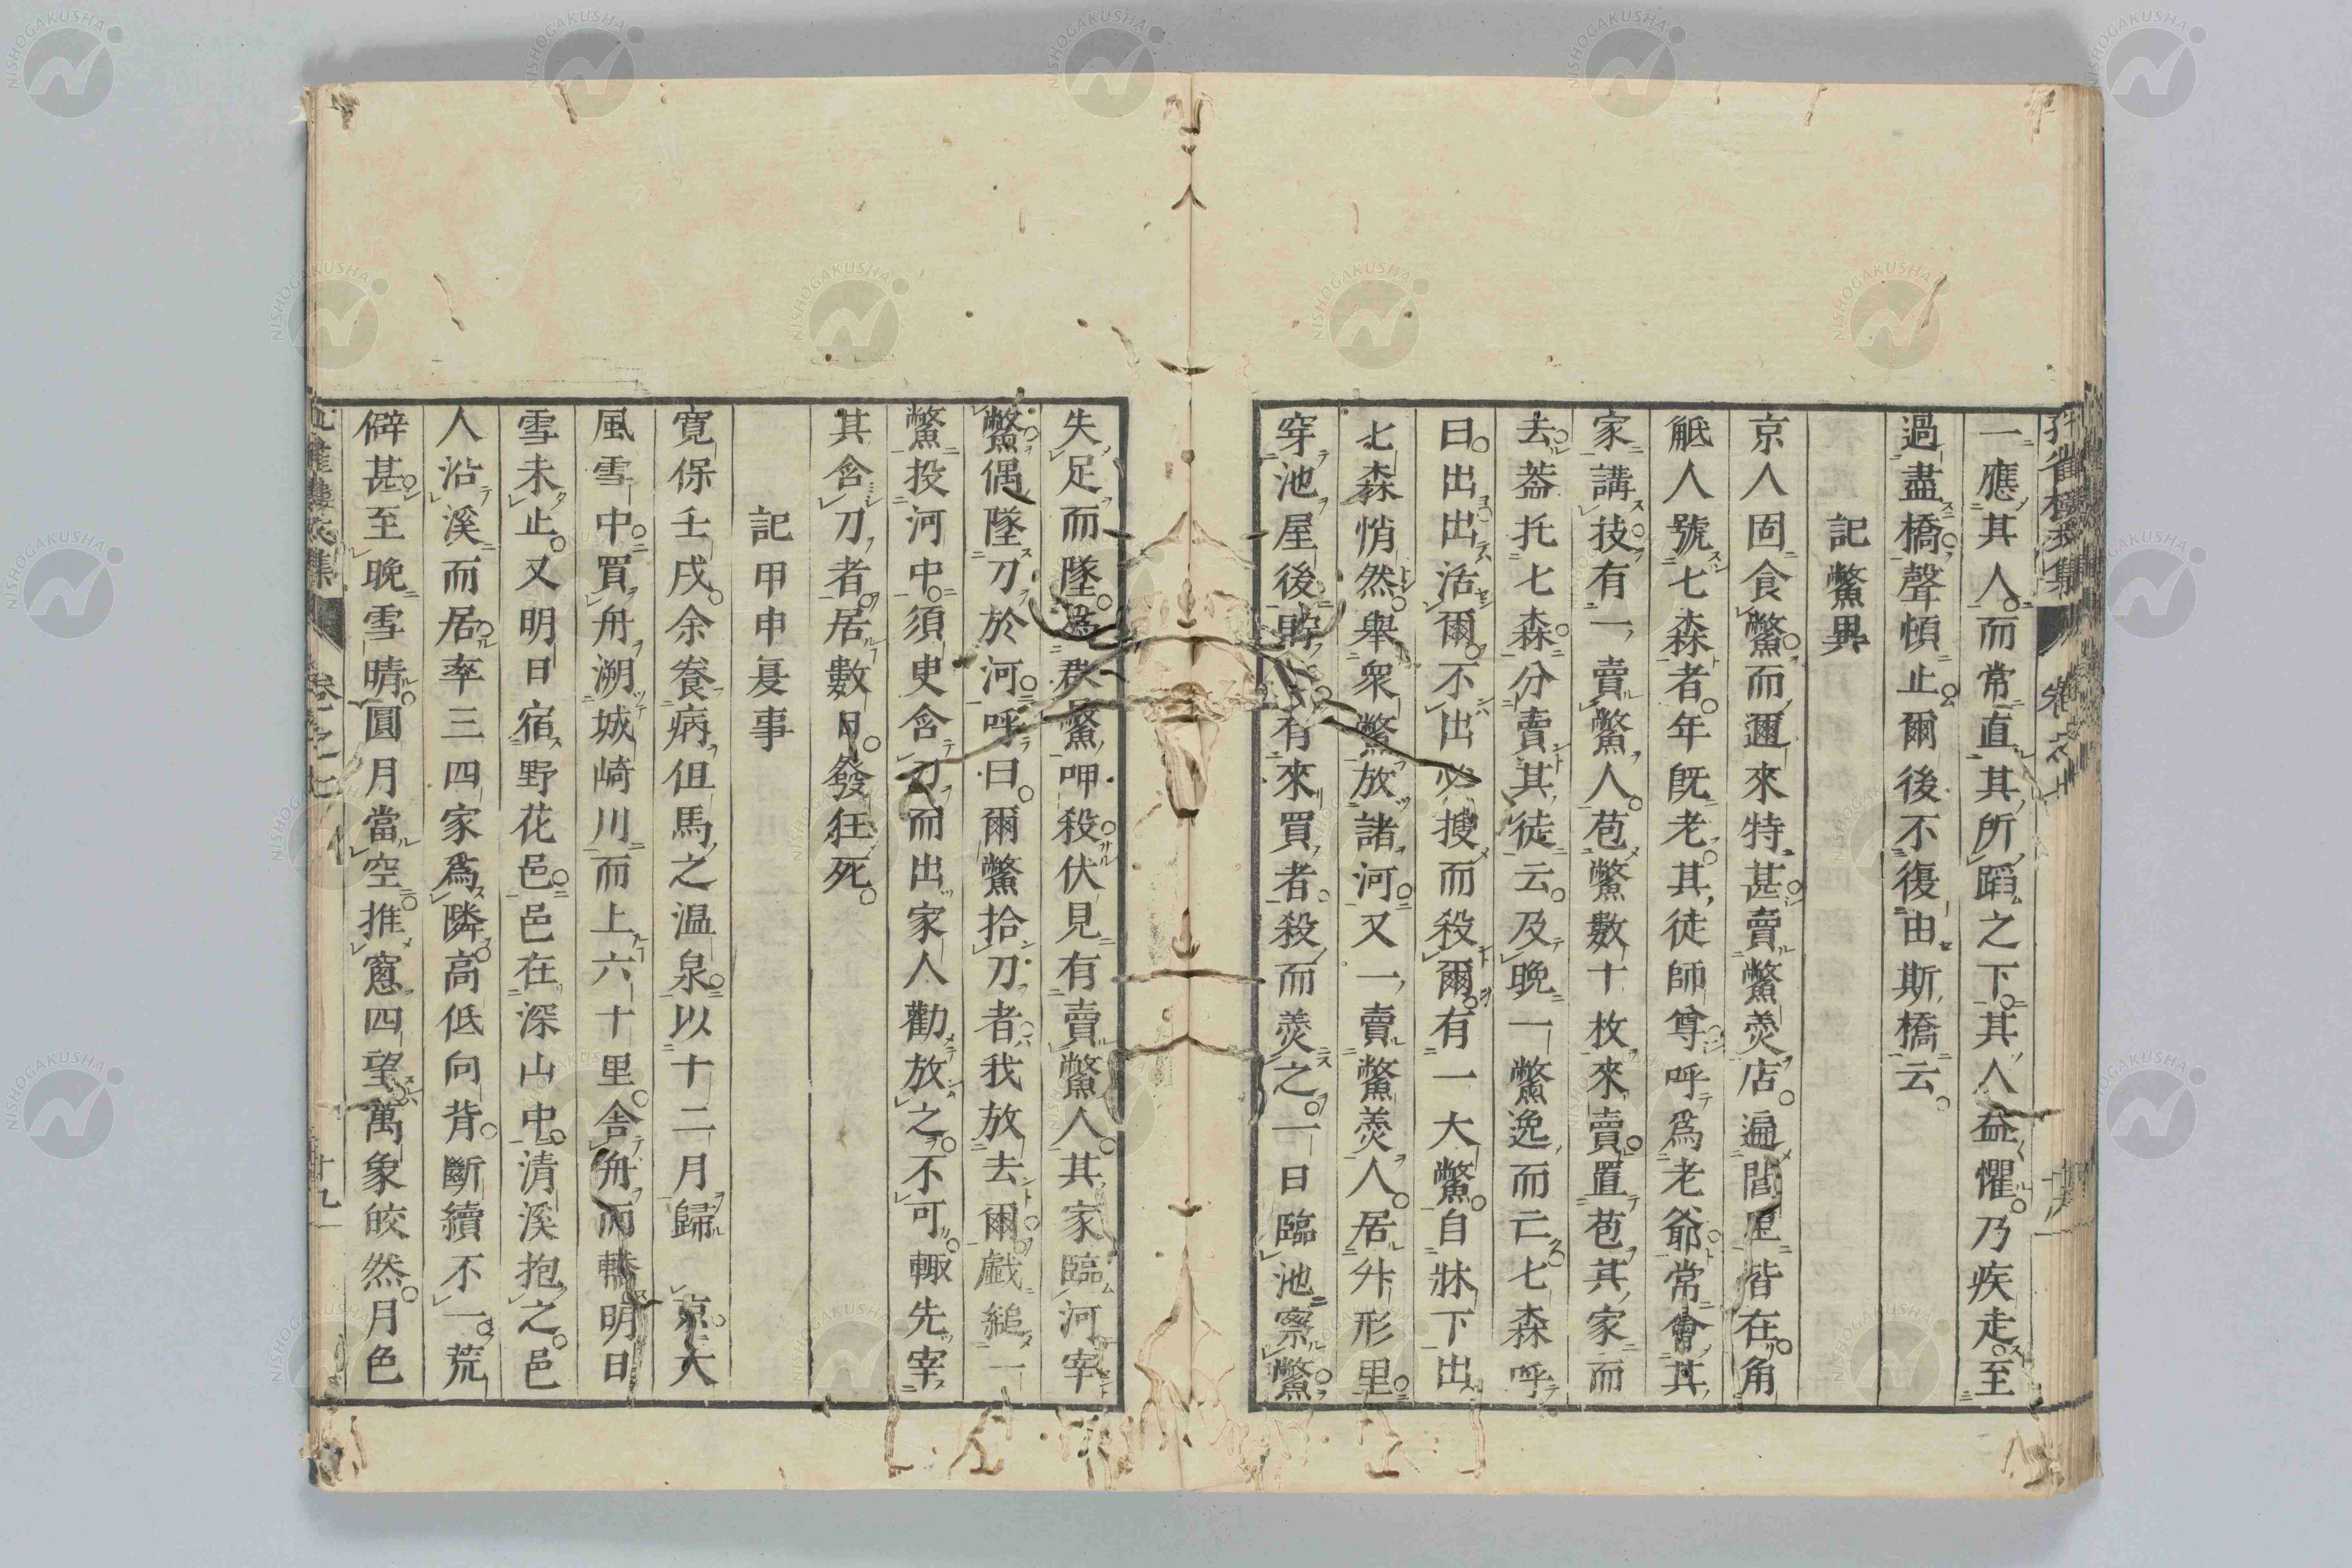 一應其人而常直其所蹈之下其人益懼乃疾走至
過盡橋聲頓止爾後不復由斯橋云
記鱉異
京人固食鱉而邇來特甚賣鱉羹店遍閭里皆在角
觝人號七森者年既老其徒師尊呼爲老爺常會其
家講技有一賣鱉人苞鱉數十枚來賣置苞其家而
去葢托七森分賣其徒云及晚一鱉逸而亡七森呼
曰出出活爾不出必搜而殺爾有一大鱉自牀下出
七森悄然舉衆鱉放諸河又一賣鱉羹人居舛形里
穿池屋後貯有來買者殺而羹之一日臨池察鱉
失足而墜爲群鱉呷殺伏見有賣鱉人其家臨河宰
鱉偶墜刀於河呼曰爾鱉拾刀者我放去爾戲縋一
鱉投河中須臾含刀而出家人勸放之不可輙先宰
其含刀者居數日發狂死
記甲申夏事
寛保壬戌余養病但馬之温泉以十二月歸 京大
風雪中買舟溯城崎川而上六十里舎舟而轎明日
雪未止又明日宿野花邑邑在深山中清溪抱之邑
人沿溪而居率三四家爲隣高低向背斷續不一荒
僻甚至晚雪晴圓月當空推窓四望萬象皎然月色
卷之七 十九